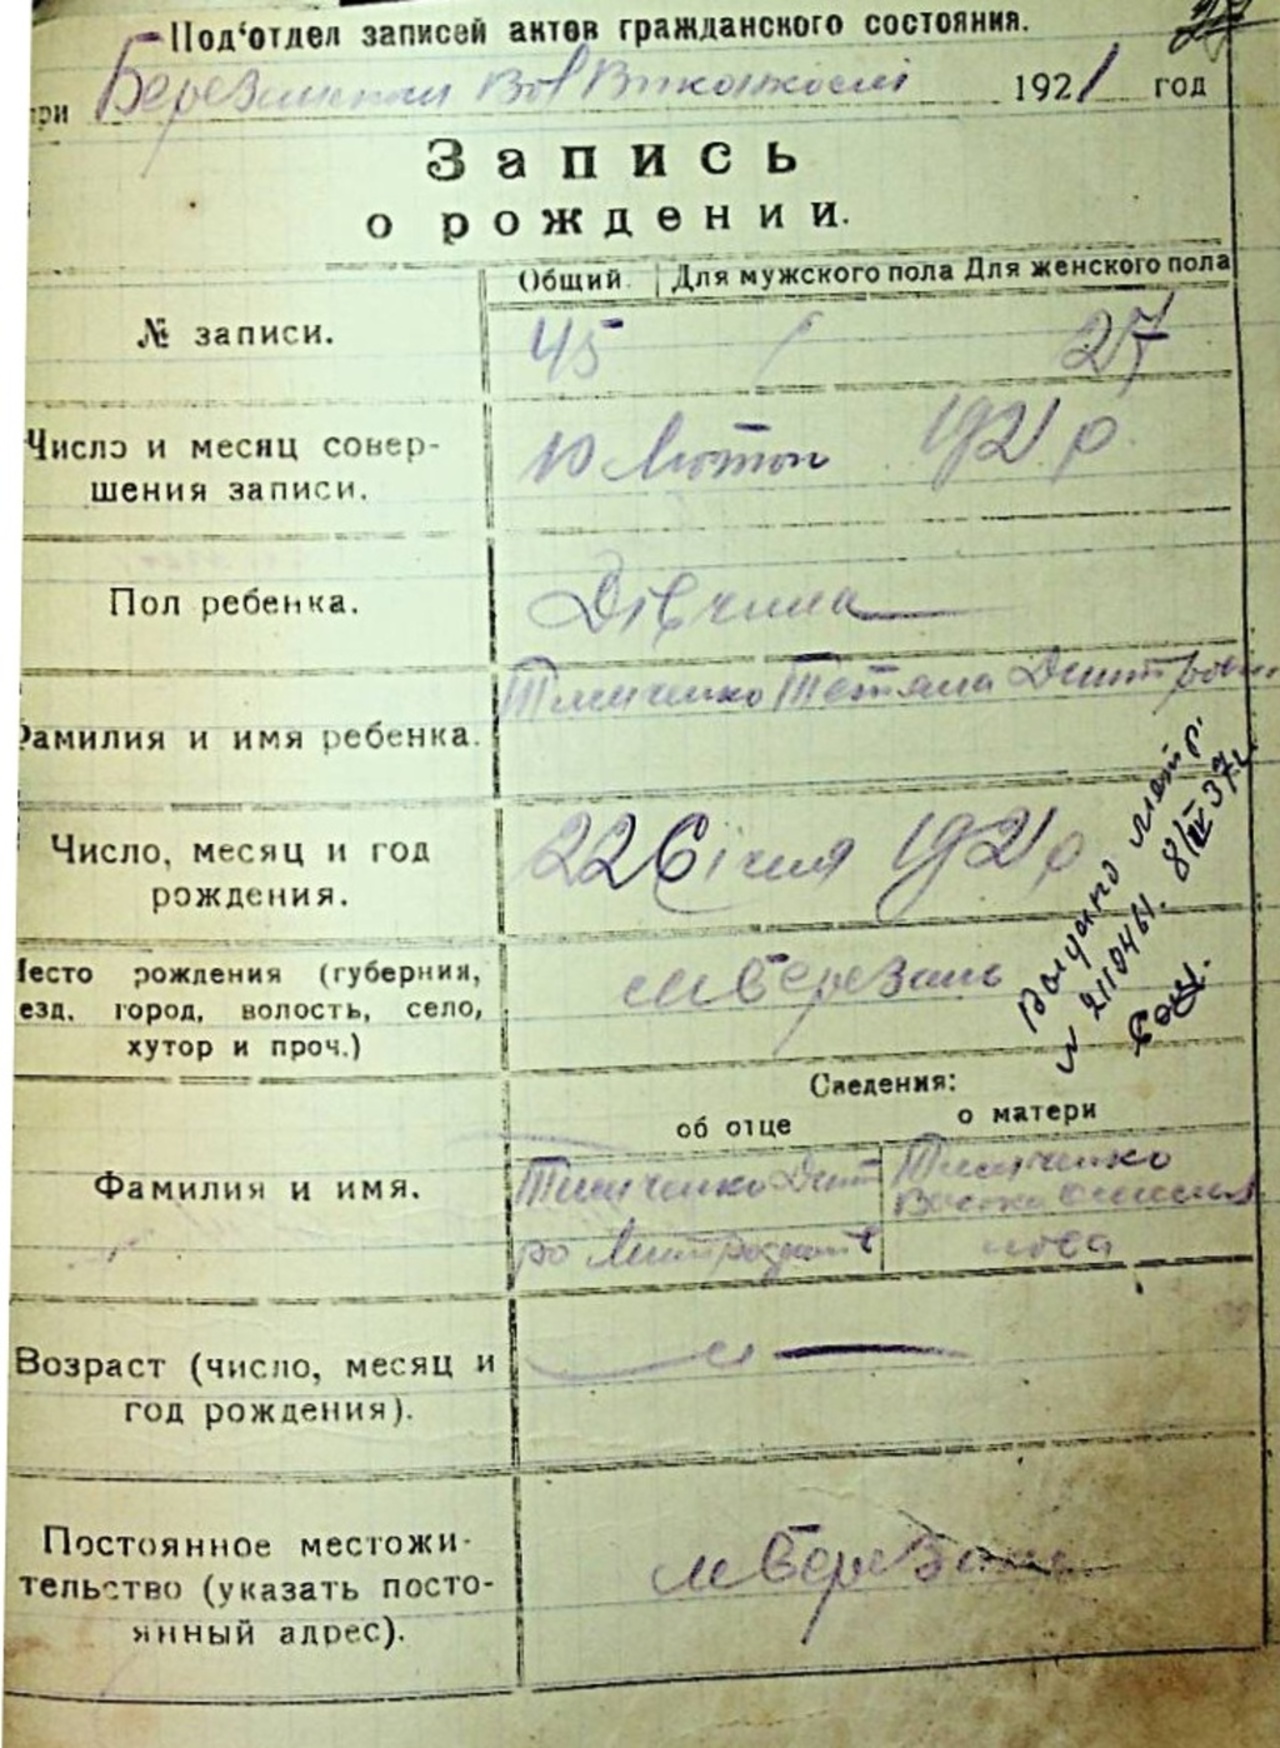 Под'отдел записей актов гражданского состояния.
при Березанском Вол Виконкомі 1921 год
Запись
о рождении.
Общий Для мужского пола Для женского пола
№ записи. 45 27
Число и месяц совер-
шения записи. 10 Лютого 1921 р
Пол ребенка. Дівчина
Фамилия и имя ребенка. Тимченко Тетяна Дмитровна
Число, месяц и год
рождения. 22 Січня 1921 р
Место рождения (губерния,
уезд, город, волость, село,
хутор и проч.) м Березань
Выдано метр.
№ 2110461. 8/IV 37г.
Сведения:
об отце о матери
Фамилия и имя. Тимченко Дмит
ро Тимченко
Возраст (число, месяц и
год рождения).
Постоянное местожи-
тельство (указать посто-
янный адрес). м Березань